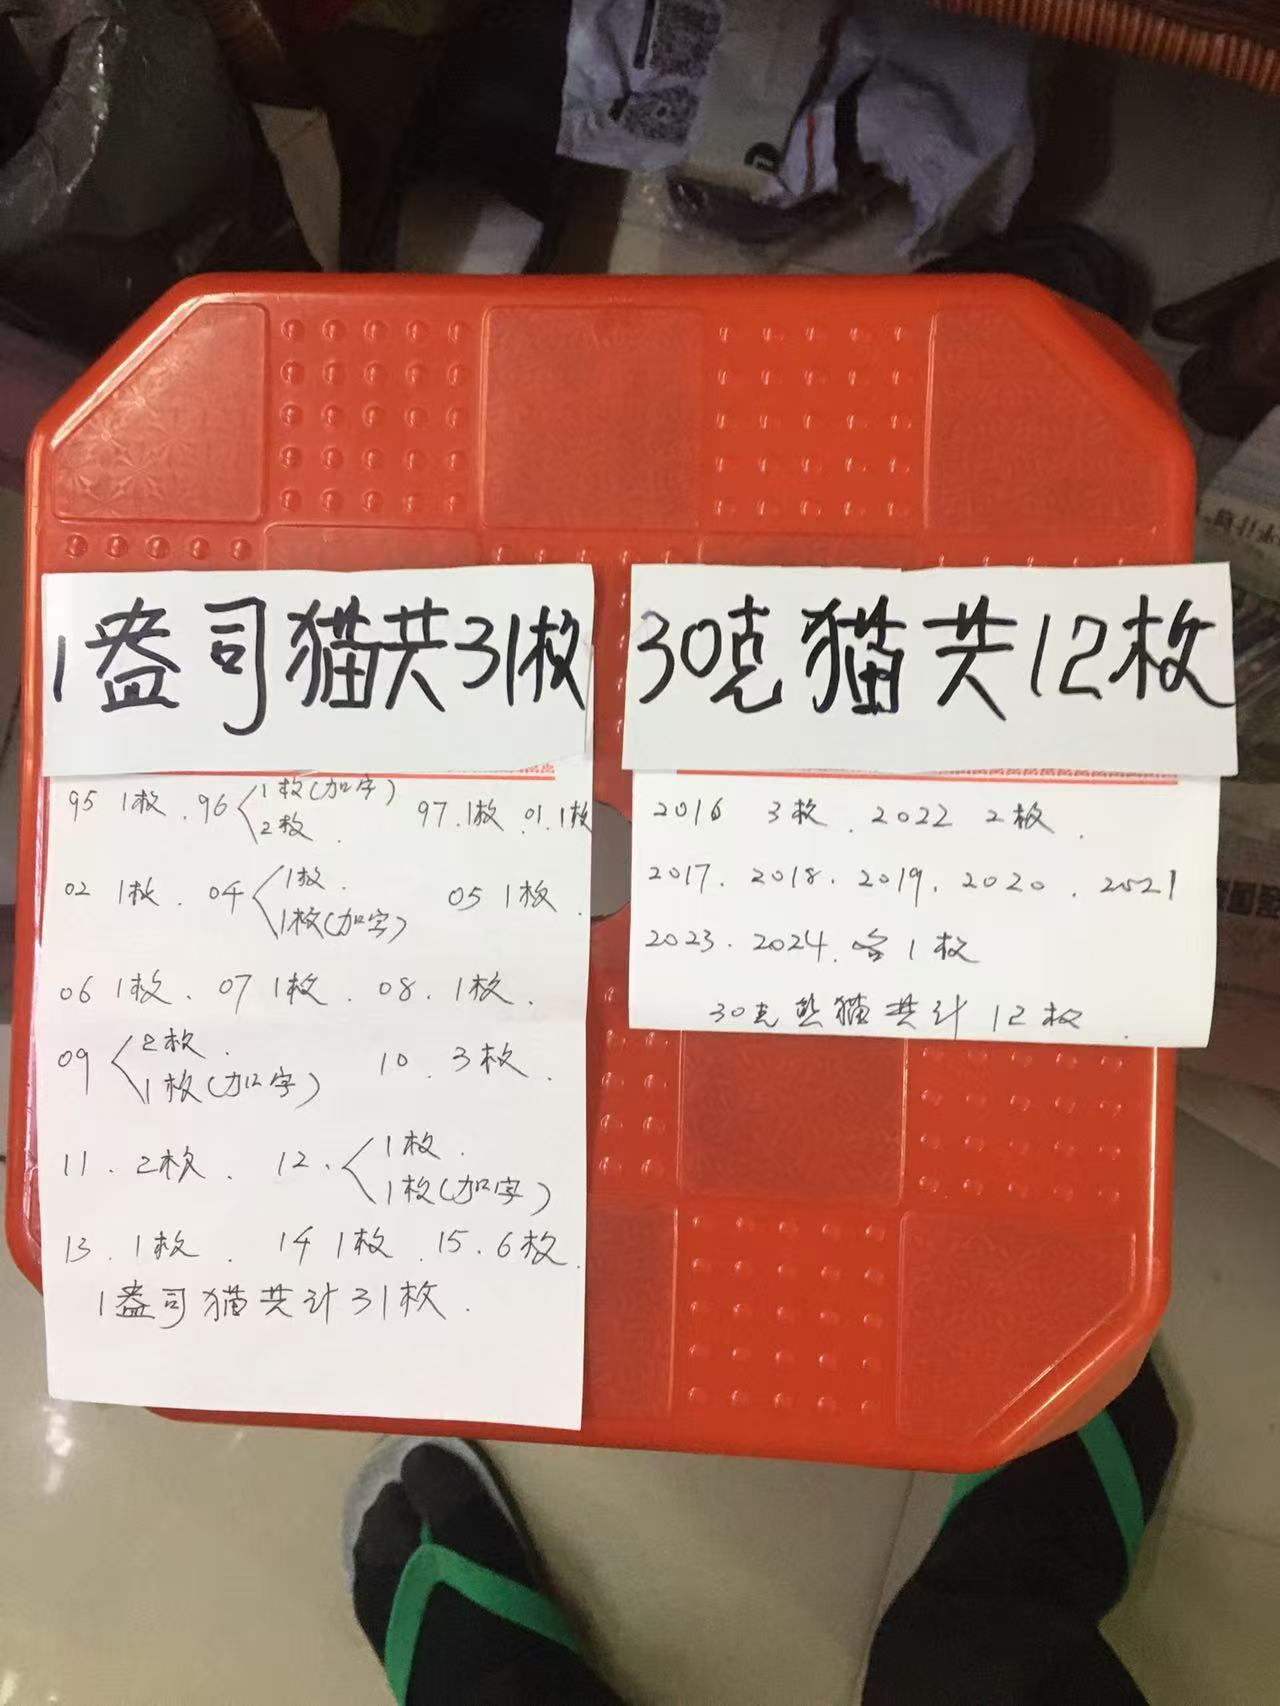 1盎司猫共31枚
95 1枚.96 1枚(加字) 2枚. 97.1枚.01.1枚
02 1枚.04 1枚. 1枚(加字) 05 1枚.
06 1枚.07 1枚.08.1枚.
09 2枚. 1枚(加字) 10.3枚.
11.2枚.12. 1枚. 1枚(加字)
13.1枚.14 1枚.15.6枚.
1盎司猫共计31枚.
30克猫共12枚
2016 3枚.2022 2枚.
2017.2018.2019.2020.2021
2023.2024.各1枚
30克熊猫共计12枚.